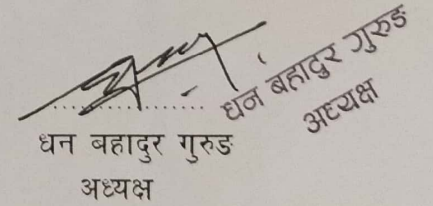 धन बहादुर गुरुङ
अध्यक्ष
धन बहादुर गुरुङ
अध्यक्ष